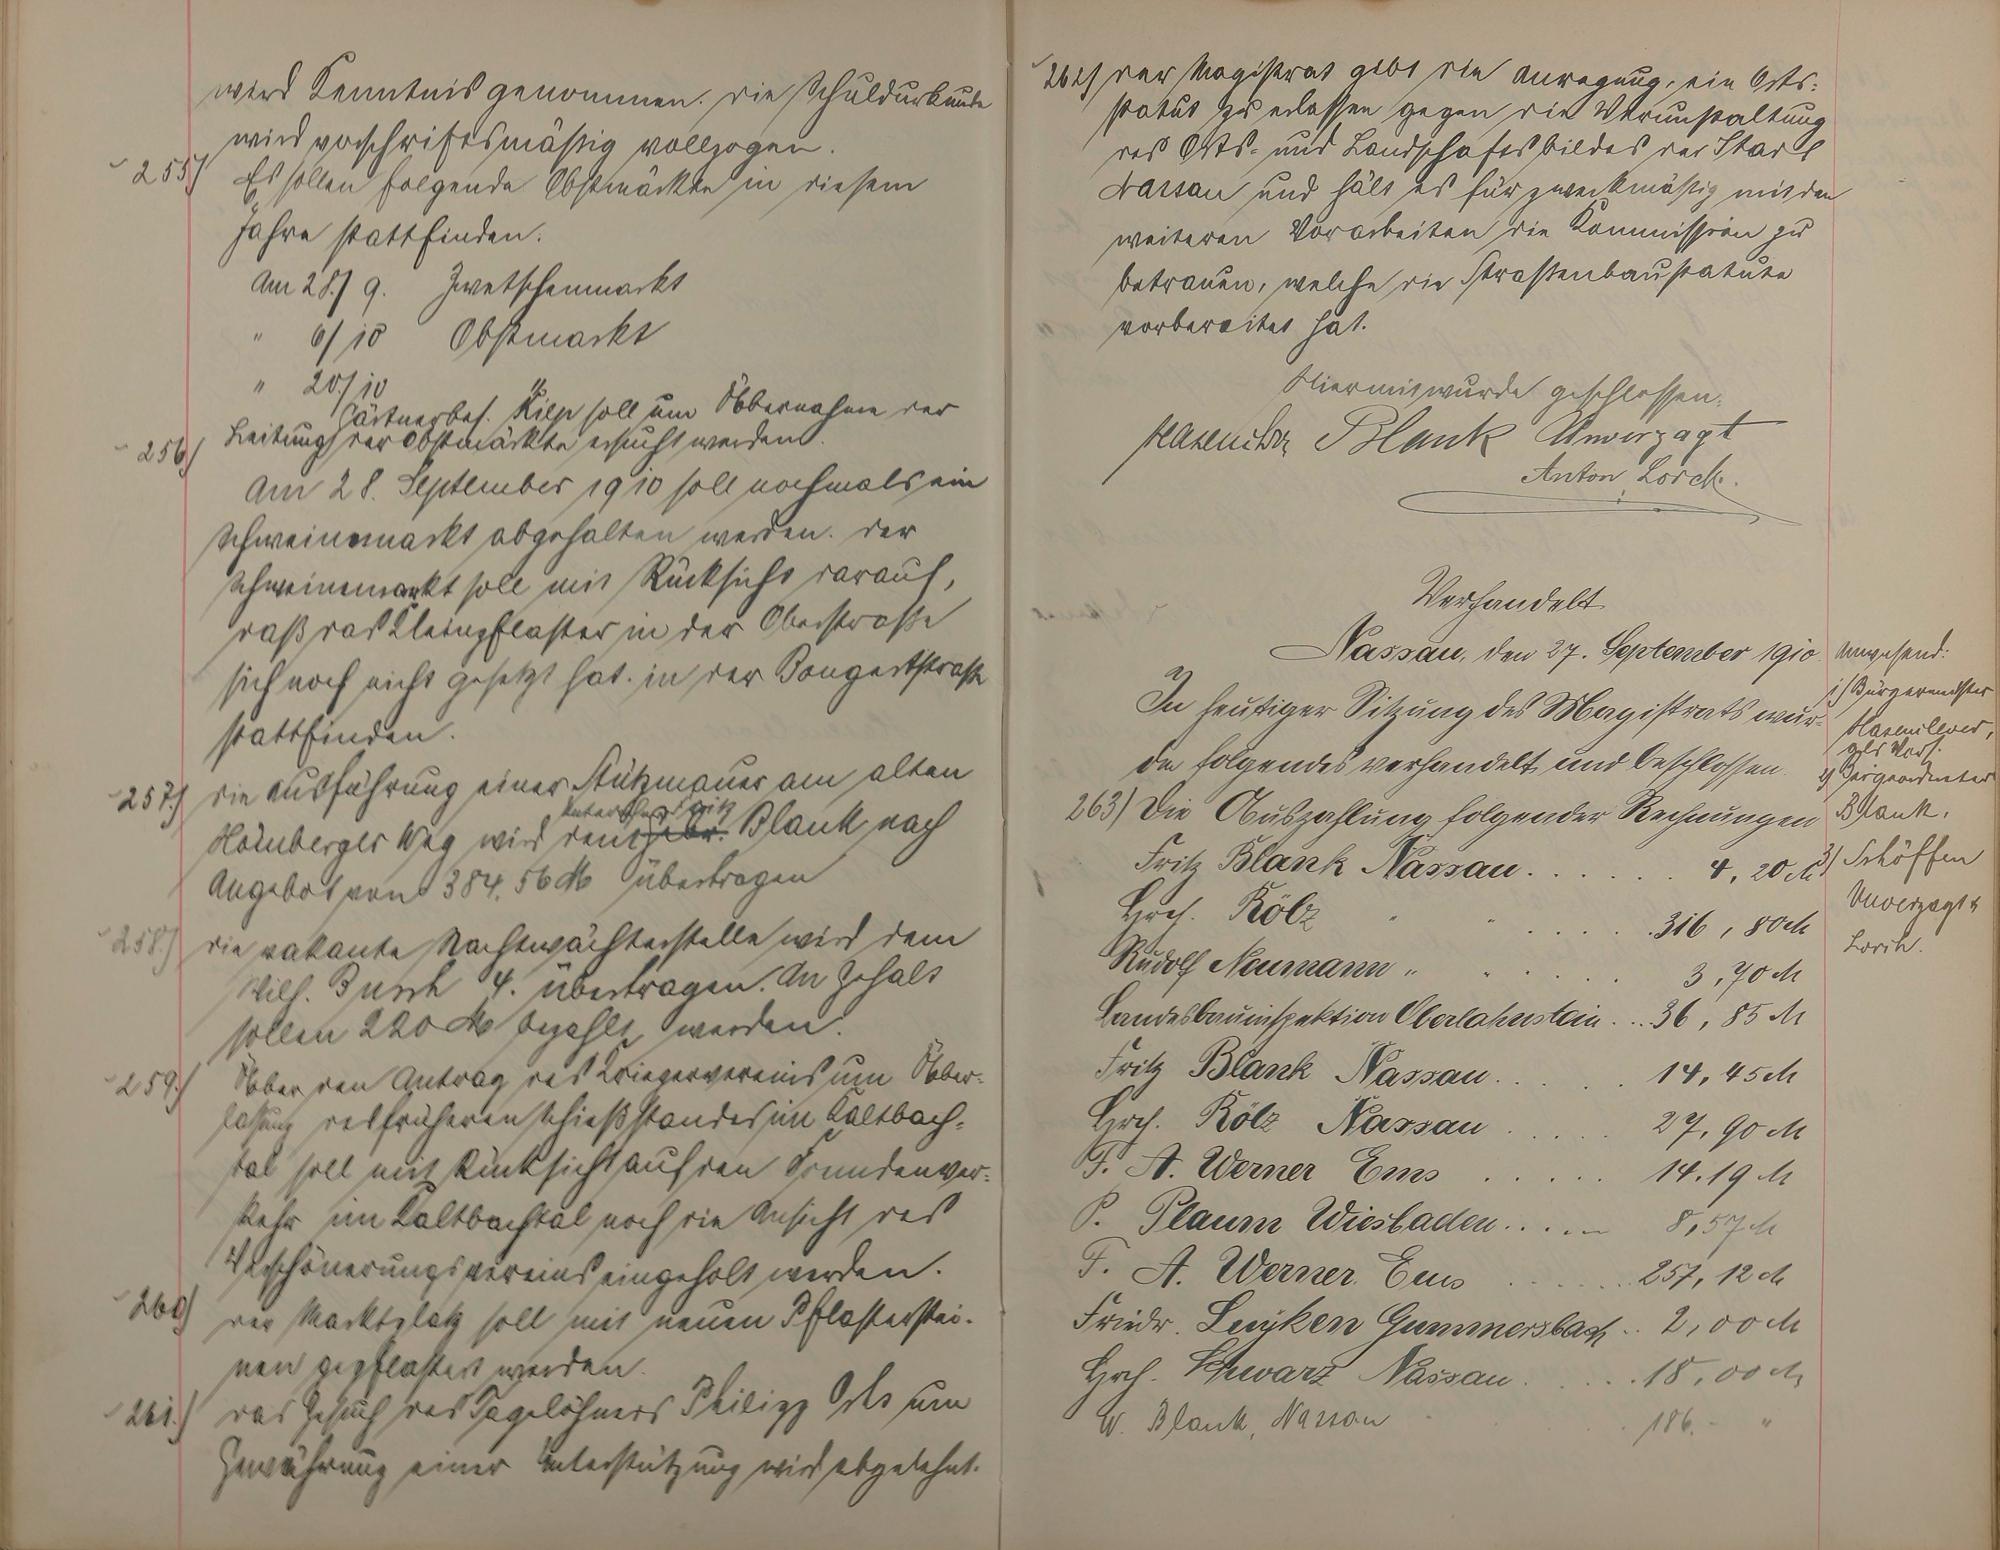 wird Kenntnis genommen. Die Schuldurkunde
wird vorschriftsmäßig vollzogen.
255) Es sollen folgende Obstmärkte in diesem
Jahre stattfinden.
Am 28./9. Zwetschenmarkt
" 6/10 Obstmarkt
" 20/10 "
Gärtnerbes. Kilp soll um Übernahme der
Leitung der Obstmärkte ersucht werden.
256) Am 28. September 1910 soll nochmals ein
Schweinemarkt abgehalten werden. Der
Schweinemarkt soll mit Rücksicht darauf,
daß das Kleinpflaster in der Oberstraße
sich noch nicht gesetzt hat. in der Bongertstraße
stattfinden.
257.) Die Ausführung einer Stützmauer am alten
Hömberger Weg wird dem Unternehmer Fritz Blank nach
Angebot von 384,56 M übertragen
258.) Die vakante Nachtwächterstelle wird dem
Wilh. Busch 4. übertragen. An Gehalt
sollen 220 M bezahlt werden.
259.) Über den Antrag des Kriegervereins um Über-
lassung des früheren Schießstandes im Kaltbach-
tal soll mit Rücksicht auf den Fremdenver-
kehr im Kaltbachtal noch die Ansicht des
Verschönerungsvereins eingeholt werden.
260) Der Marktplatz soll mit neuen Pflasterstei-
nen gepflastert werden.
261.) Das Gesuch des Tagelöhners Philipp Orts um
Gewährung einer Unterstützung wird abgelehnt.
262) Der Magistrat gibt die Anregung, ein Orts-
statut zu erlassen gegen die Verunstaltung
des Orts- und Landschaftsbildes der Stadt
Nassau und hält es für zweckmäßig mit den
weiteren Vorarbeiten die Kommission zu
betrauen, welche die Straßenbaustatute
vorbereitet hat.
Hiermit wurde geschlossen.
Hasenclever Blank Unverzagt
Anton Lorch.
Verhandelt
Nassau, den 27. September 1910.
In heutiger Sitzung des Magistrats wur-
de folgendes verhandelt und beschlossen.
263) Die Auszahlung folgender Rechnungen
Fritz Blank Nassau . . . . . . 4,20 M
Hrch. Kölz " " . . . . . 316,80 M
Rudolf Neumann " " . . . . 3,70 M
Landesbauinspektion Oberlahnstein . . . 36,85 M
Fritz Blank Nassau . . . . . 14,45 M
Hrch. Kölz Nassau . . . . . 27,90 M
F. A. Werner Ems . . . . . 14.19 M
P. Plaum Wiesbaden . . . . 8,57 M
F. A. Werner Ems . . . . . 257,12 M
Friedr. Luyken Gummersbach . . 2,00 M
Hrch. Schwarz Nassau . . . . . 18,00 M
W. Blank, Nassau 186.- "
Anwesend:
1) Bürgermeister
Hasenclever,
als Vors.
2) Beigeordneter
Blank,
3) Schöffen
Unverzagt &
Lorch.